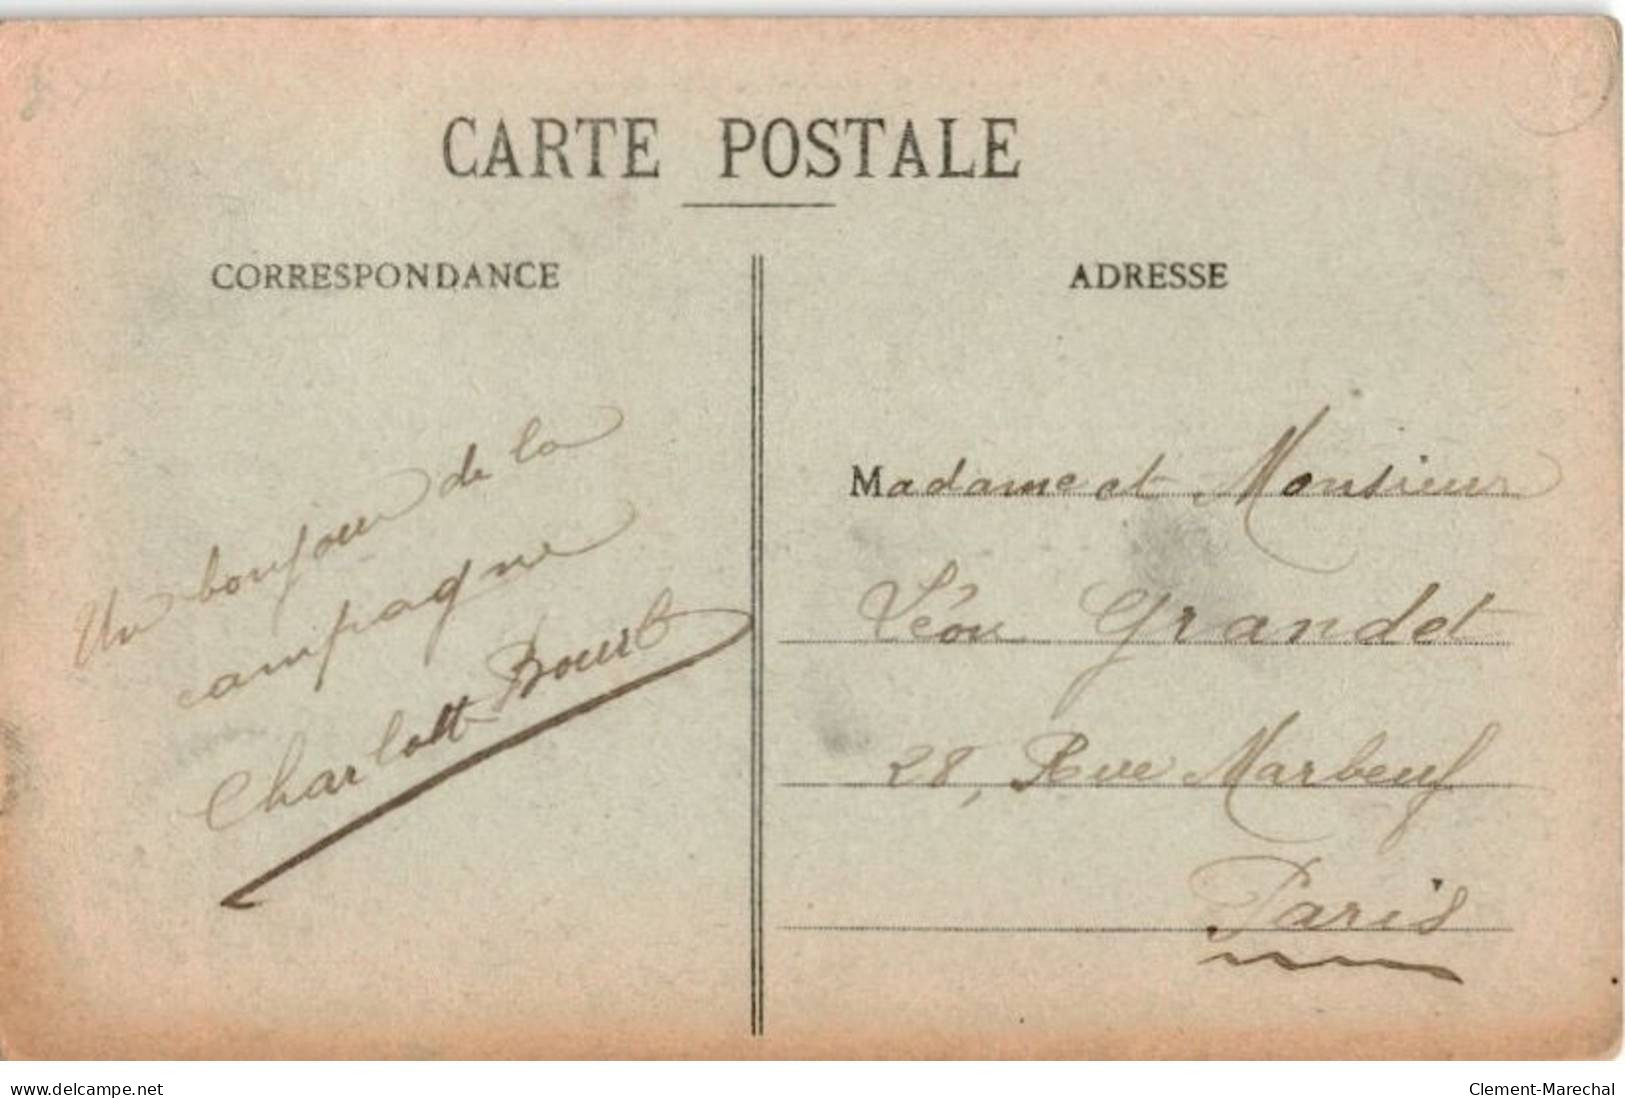 CARTE POSTALE
CORRESPONDANCE
ADRESSE
Un bonjour de la
campagne
Charlotte
Madame et Monsieur
Léon Grandet
28, Rue Marbeuf
Paris
www.delcampe.net
Clement-Marechal